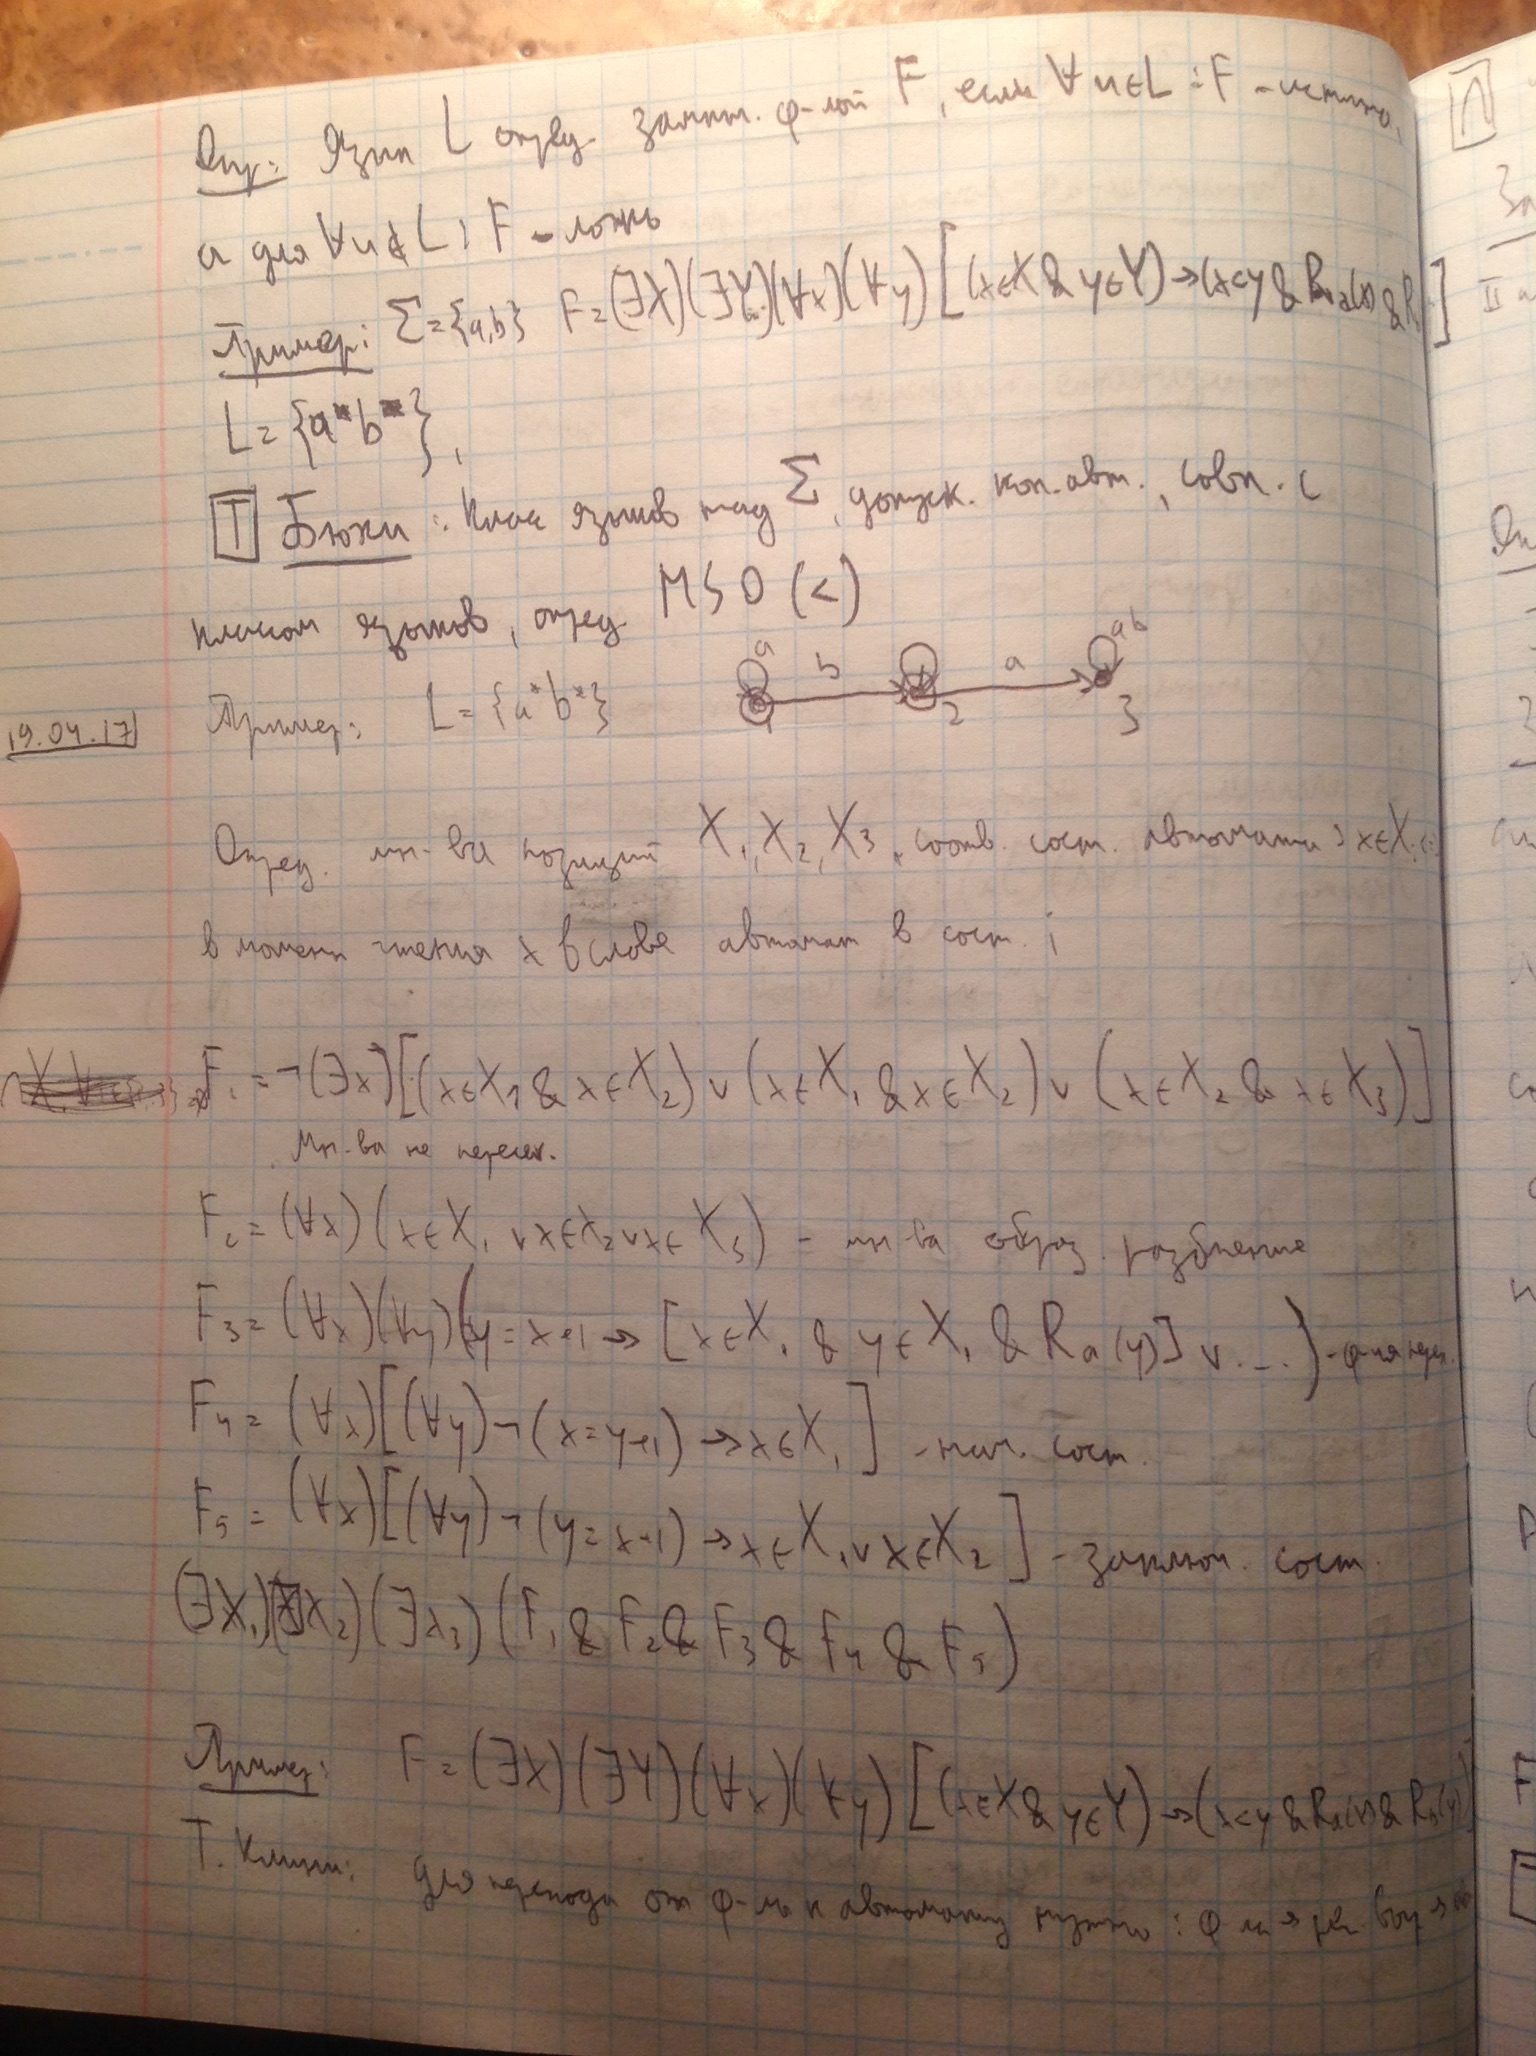 Опр: Язык L опред. замкн. ф-лой F, если ∀ u∈L : F – истина,
а для ∀u∉L : F – ложь
Пример: Σ={a,b} F=(∃X)(∃Y)(∀x)(∀y)[(x∈X & y∈Y)→(x<y & Ra(x) & R
L={a*b*},
Т Бюхи: Класс языков над Σ, допуск. кон. авт., совп. с
классом языков, опред. MSO(<)
19.04.17 Пример: L={a*b*} a b a a,b 1 2 3
Опред. мн-ва позиций X1, X2, X3, соотв. сост. автомата
в момент чтения x в слове автомат в сост. i
F1 = ¬(∃x)[(x∈X1 & x∈X2) ∨ (x∈X1 & x∈X2) ∨ (x∈X2 & x∈X3)]
Мн-ва не пересек.
F2 = (∀x)(x∈X1 ∨ x∈X2 ∨ x∈X3) – мн-ва образ. разбиение
F3 = (∀x)(∀y)(y=x+1 → [x∈X1 & y∈X1 & Ra(y)] ∨ ...) – ф-ия перех.
F4 = (∀x)[(∀y)¬(x=y+1) → x∈X1] – нач. сост.
F5 = (∀x)[(∀y)¬(y=x+1) → x∈X1 ∨ x∈X2] – заключ. сост.
(∃X1)(∃X2)(∃X3)(F1 & F2 & F3 & F4 & F5)
Пример: F=(∃X)(∃Y)(∀x)(∀y)[(x∈X & y∈Y)→(x<y & Ra(x) & Rb(y)
Т. Клини: Для перехода от ф-лы к автомату нужно: ф-ла → рег. выр →